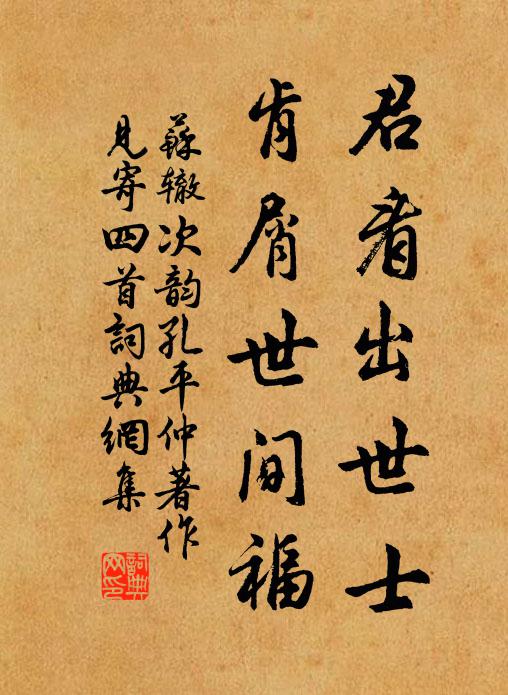 君看出世士
肯屑世间福
蘇辙次韵孔平仲著作
见寄四首詞典網集
詞典网印